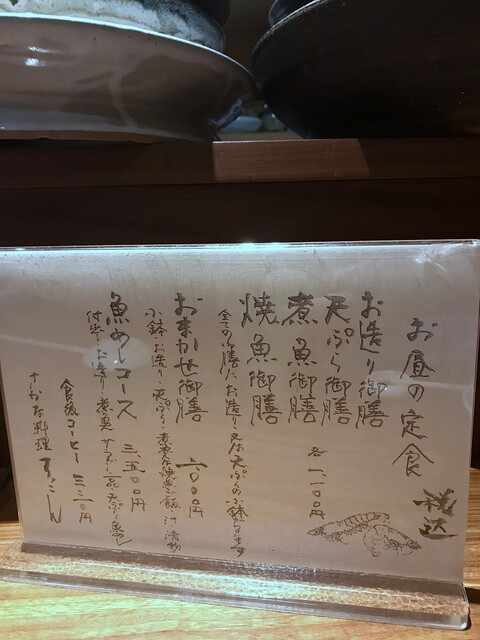 お昼の定食
税込
お造り御膳
天ぷら御膳
煮魚御膳
焼魚御膳
各一、一〇〇円
全ての御膳にお造り又は天ぷらの小鉢が付きます
おまかせ御膳
円
小鉢 お造り 天ぷら 煮魚又は焼魚 ご飯 汁 漬物
魚めしコース
三、五〇〇円
付出し お造り 煮魚 サラダ 一品 天ぷら 魚めし
食後コーヒー 三三〇円
さかな料理